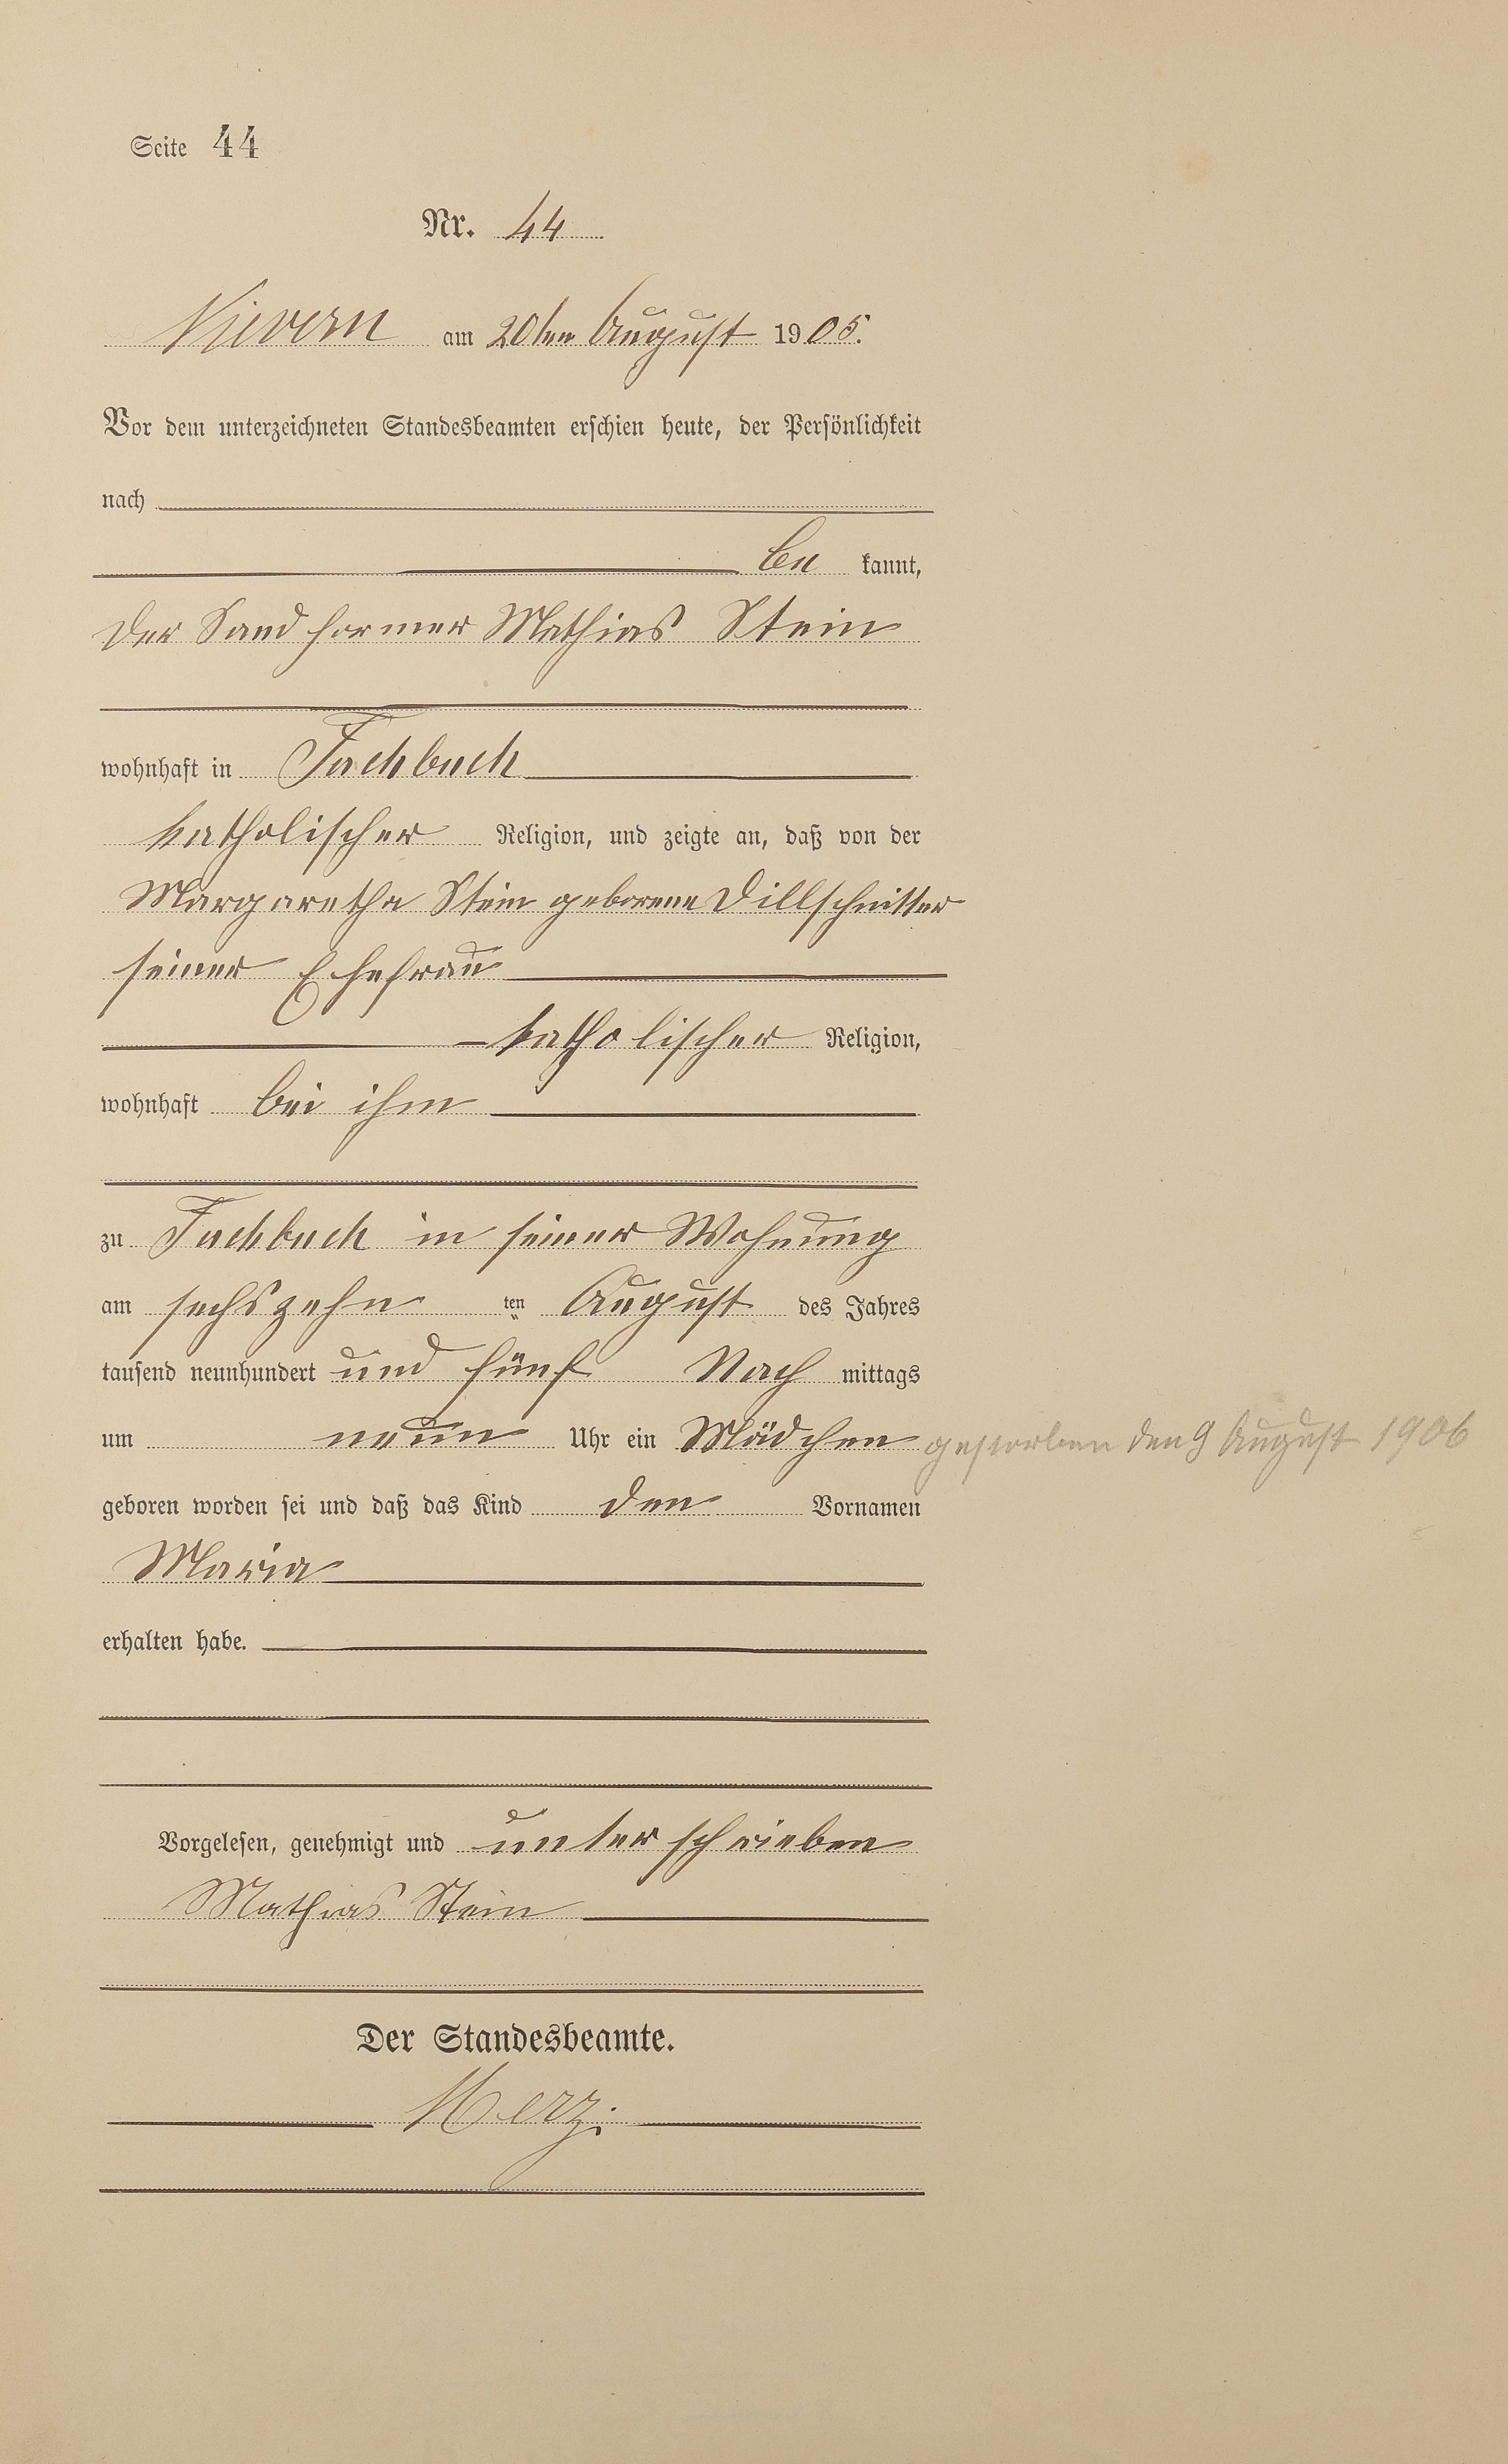 Seite 44
Nr. 44
Nievern am 20ten August 1905.
Vor dem unterzeichneten Standesbeamten erschien heute, der Persönlichkeit
nach
be kannt,
der Sandformer Mathias Stein
wohnhaft in Fachbach
katholischer Religion, und zeigte an, daß von der
Margaretha Stein geborene Dillschnitter
seiner Ehefrau
katholischer Religion,
wohnhaft bei ihm
zu Fachbach in seiner Wohnung
am sechszehn ten August des Jahres
tausend neunhundert und fünf Nach mittags
um neun Uhr ein Mädchen gestorben den 9 August 1906
geboren worden sei und daß das Kind den Vornamen
Maria
erhalten habe.
Vorgelesen, genehmigt und unterschrieben
Mathias Stein
Der Standesbeamte.
Merz.